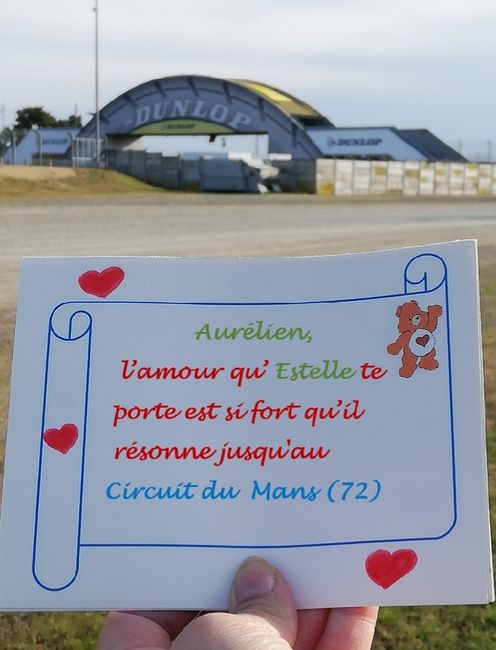 DUNLOP
DUNLOP
DUNLOP
Aurélien,
l'amour qu' Estelle te
porte est si fort qu'il
résonne jusqu'au
Circuit du Mans (72)